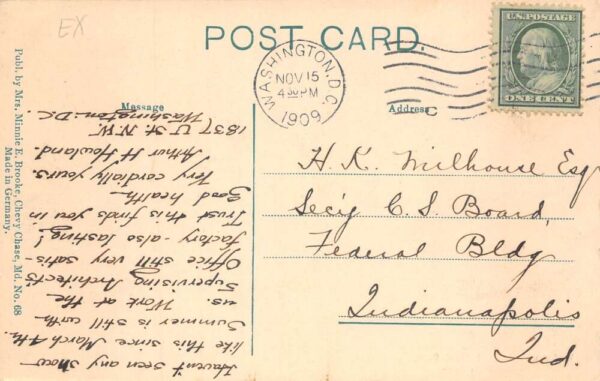 EX
POST CARD.
U.S. POSTAGE
ONE CENT
WASHINGTON, D.C.
NOV 15
4 30 PM
1909
C
Message
Address
Haven't seen any snow
like this since March 4th.
Summer is still with
us. Work at the
Supervising Architect's
Office still very satis-
factory - also lasting!
Trust this finds you in
Good health.
Very cordially yours.
Arthur H. Howland.
1837 U St. N.W.
Washington. D.C.
H. K. Milhouse Esq
Sec'y C. S. Board,
Federal Bldg
Indianapolis
Ind.
Publ. by Mrs. Minnie E. Brooke, Chevy Chase, Md. No. 68
Made in Germany.